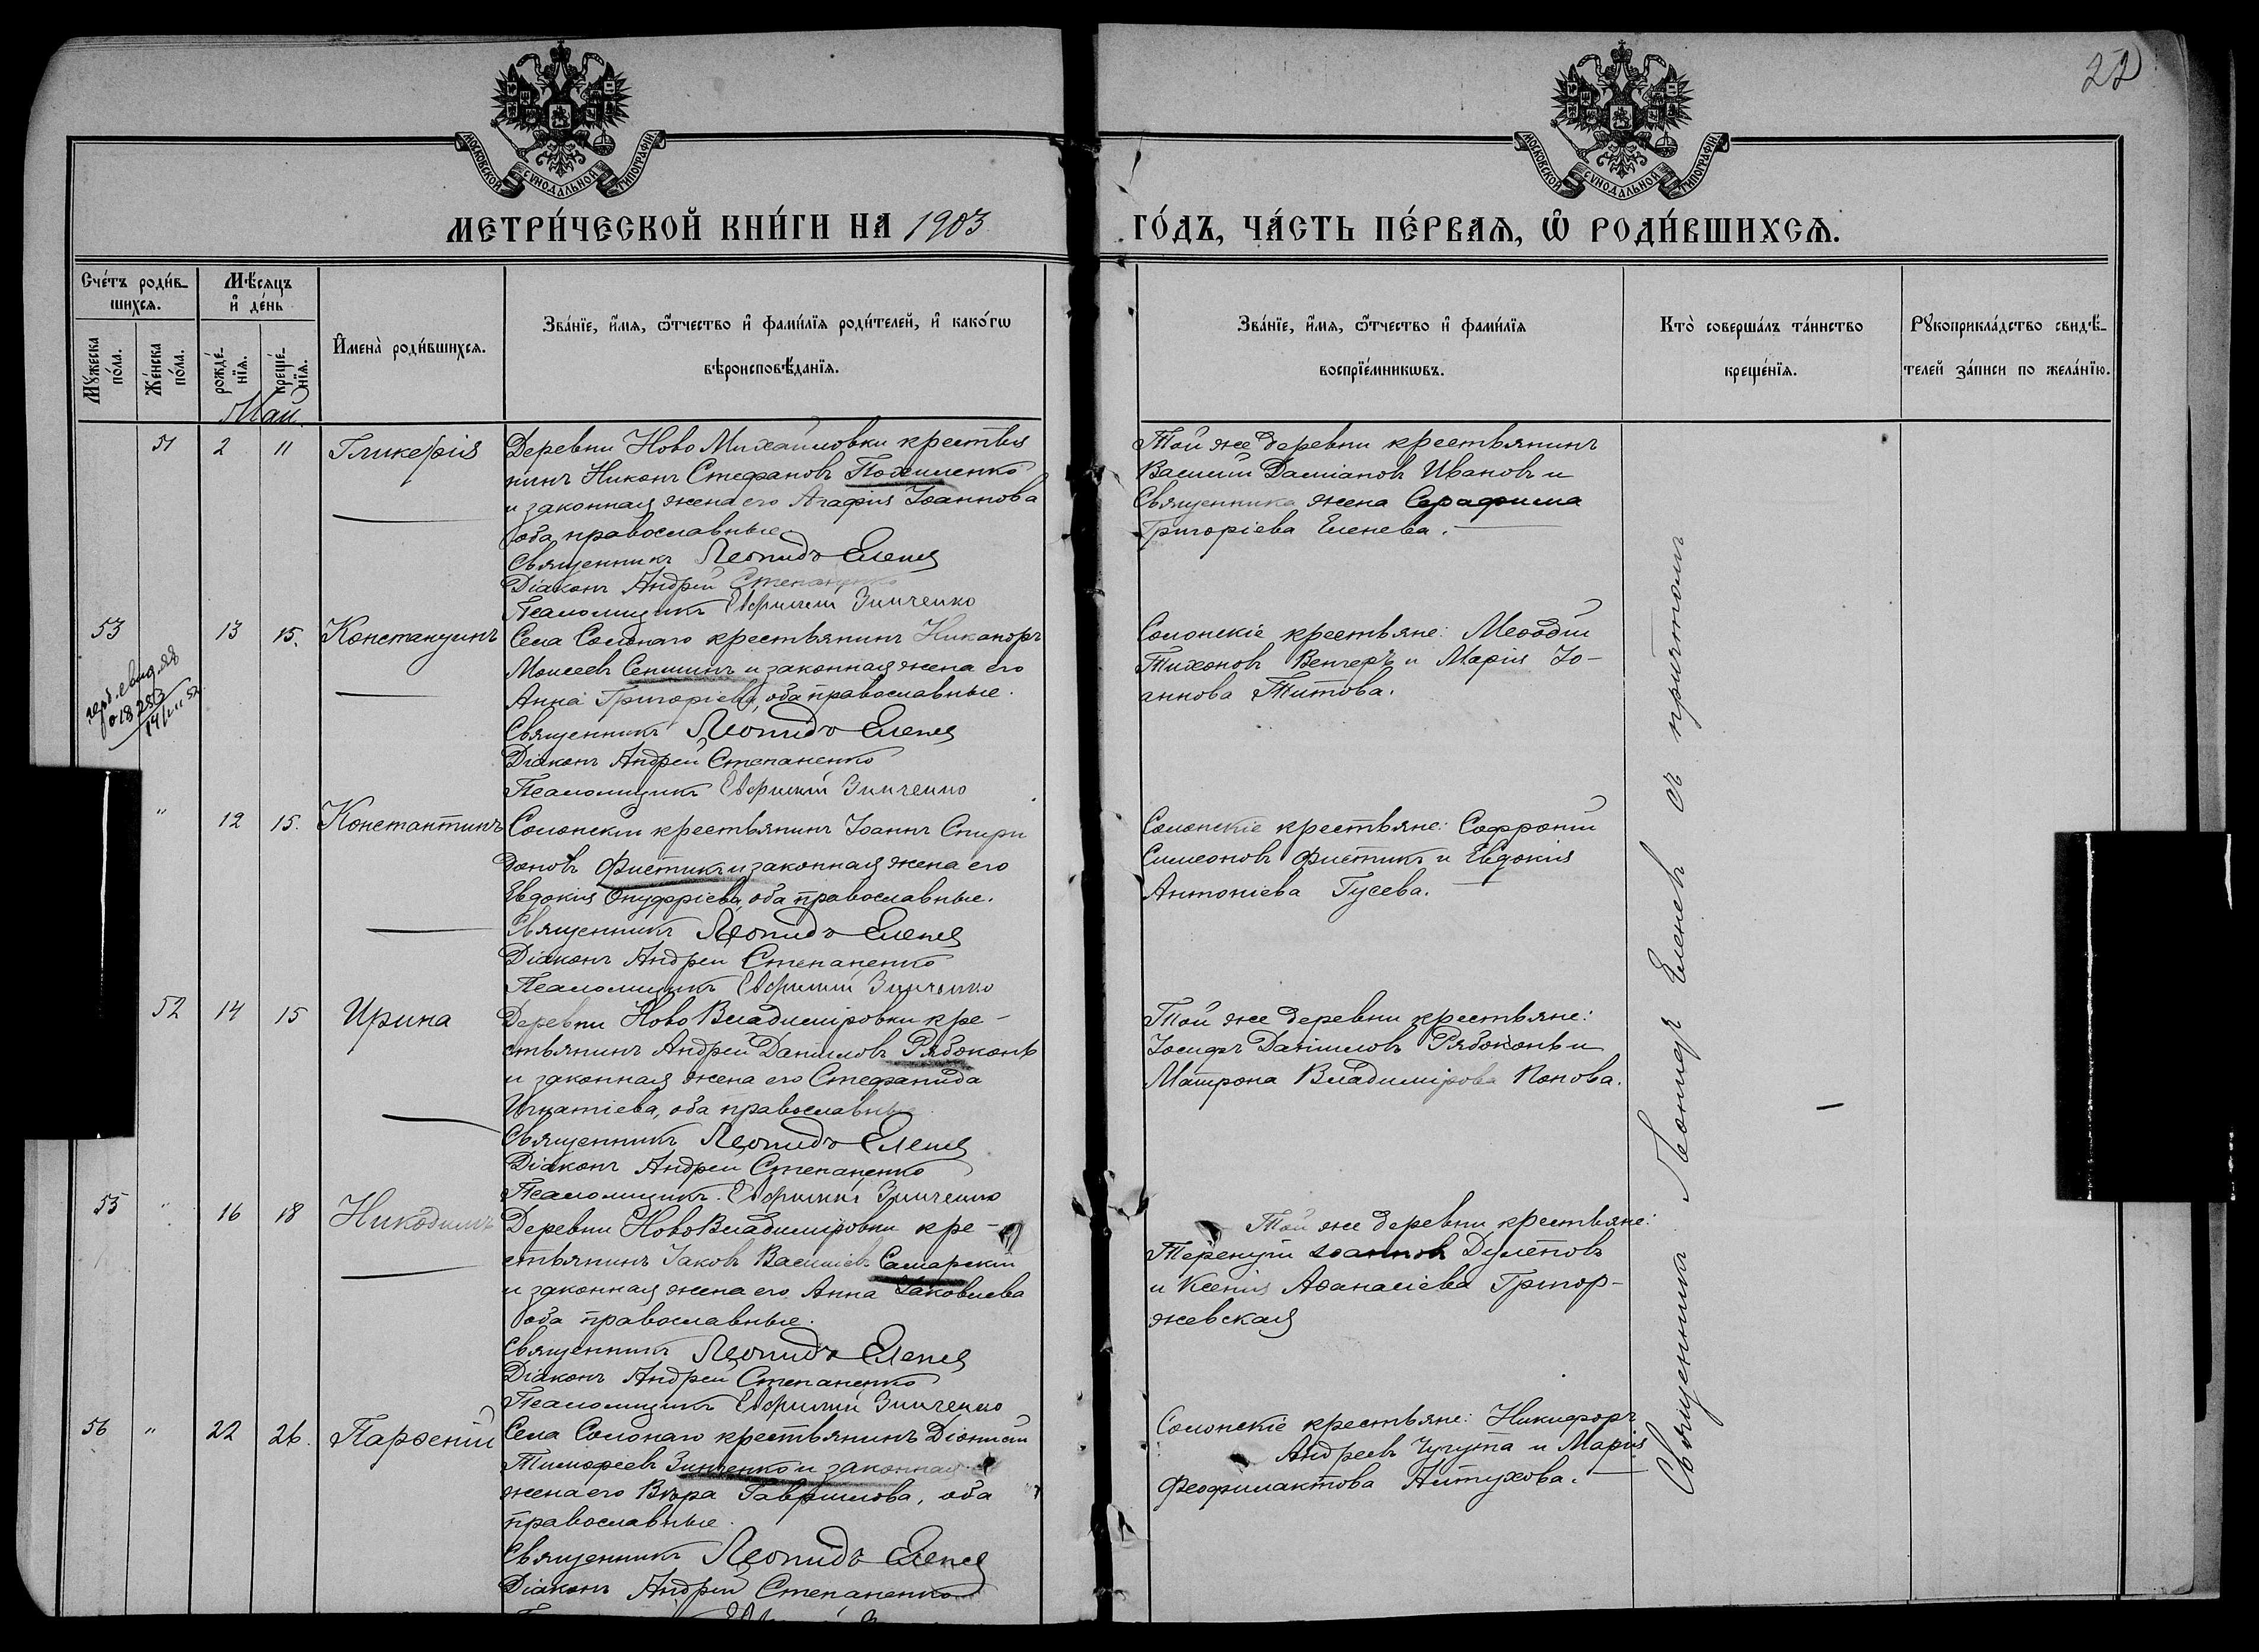 22
МОСКОВСКОЙ СѴНОДАЛЬНОЙ ТИПОГРАФІИ
МОСКОВСКОЙ СѴНОДАЛЬНОЙ ТИПОГРАФІИ
МЕТРИ́ЧЕСКОЙ КНИ́ГИ НА 1903
ГО́ДЪ, ЧА́СТЬ ПЕ́РВАѦ, Ѡ РОДИ́ВШИХСѦ.
Счéтъ роди́в-
шихсѧ.
Мꙋ́жеска
по́ла.
Же́нска
по́ла.
Мѣ́сяцъ
и҆ де́нь
рожде́-
нїѧ.
креще́-
нїѧ.
И҆мена̀ роди́вшихсѧ.
Зва́нїе, и҆́мѧ, ѻ҆́тчество и҆ фами́лїѧ роди́телей, и҆ како́гѡ
вѣроисповѣ́данїѧ.
Зва́нїе, и҆́мѧ, ѻ҆́тчество и҆ фами́лїѧ
воспрїе́мникѡвъ.
Кто̀ соверша́лъ та́инство
креще́нїѧ.
Рꙋкоприкла́дство свидѣ́-
телей за́писи по жела́нїю.
Май.
51 2 11 Гликерія
Деревни Ново Михайловки крестья
нинъ Никонъ Стефановъ Похиленко
и законная жена его Агафія Іоаннова
оба православные
Священникъ Леонидъ Еленев
Діаконъ Андрей Степаненко
Псаломщикъ Евфимій Зинченко
Той же деревни крестьянинъ
Василій Даміановъ Ивановъ и
Священника жена Серафима
Григоріева Еленева.
53 13 15. Константинъ
Села Солонаго крестьянинъ Никаноръ
Моисеевъ Сепшинъ и законная жена его
Анна Григоріева, оба православные.
Священникъ Леонидъ Еленев
Діаконъ Андрей Степаненко
Псаломщикъ Евфимій Зинченко
Солонскіе крестьяне: Меѳодій
Тихоновъ Венгеръ и Марія Іо-
аннова Титова.
" 12 15. Константинъ
Солонскій крестьянинъ Іоаннъ Спири
доновъ Фистикъ и законная жена его
Евдокія Онуфріева, оба православные.
Священникъ Леонидъ Еленев
Діаконъ Андрей Степаненко
Псаломщикъ Евфимій Зинченко
Солонскіе крестьяне: Софроній
Симеоновъ Фистикъ и Евдокія
Антоніева Гусева.
52 14 15 Ирина
Деревни Ново Владиміровки кре-
стьянинъ Андрей Даниловъ Рябоконь
и законная жена его Стефанида
Игнатіева, оба православные
Священникъ Леонидъ Еленев
Діаконъ Андрей Степаненко
Псаломщикъ Евфимій Зинченко
Той же деревни крестьяне:
Іосифъ Даніиловъ Рябоконь и
Матрона Владимірова Попова.
55 " 16 18 Никодимъ
Деревни Ново Владиміровки кре-
стьянинъ Іаковъ Василіевъ Самарскій
и законная жена его Анна Іаковлева
оба православные.
Священникъ Леонидъ Еленев
Діаконъ Андрей Степаненко
Псаломщикъ Евфимій Зинченко
Той же деревни крестьяне:
Терентій Іоанновъ Дулеповъ
и Ксенія Аѳанасіева Григор-
жевская
56 " 22 26. Парѳеній
Села Солонаго крестьянинъ Діонисій
Тимоѳеевъ Зинченко и законная
жена его Вѣра Гавриилова, оба
православные.
Священникъ Леонидъ Еленев
Діаконъ Андрей Степаненко
Солонскіе крестьяне: Никифоръ
Андреевъ Чугута и Марія
Феофилактова Алтухова.
Священникъ Леонидъ Еленевъ съ причтомъ